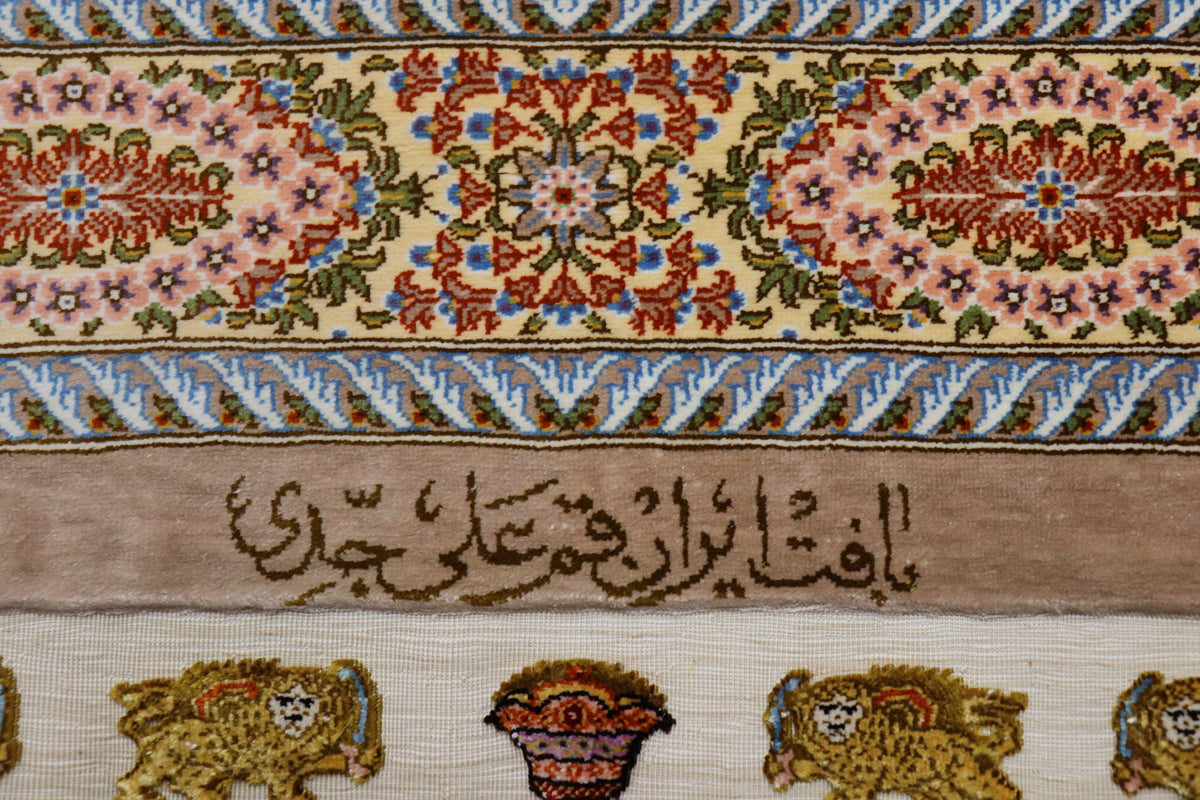 بافت ایران قم علی جدی